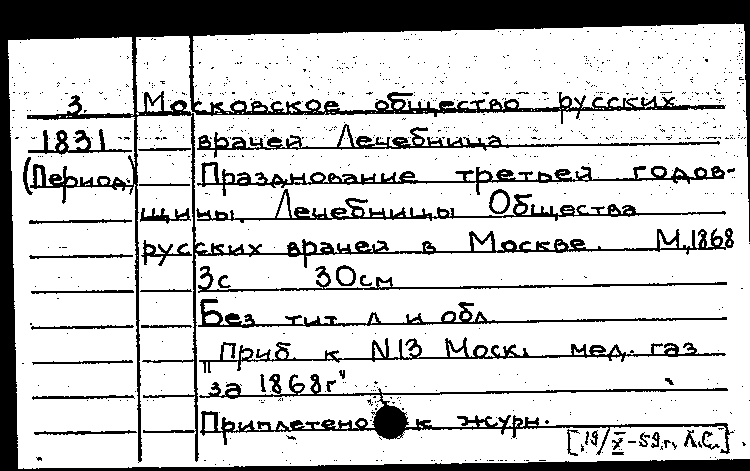 3. Московское общество русских
1831 врачей Лечебница
(Период.) Празднование третьей годов-
щины Лечебницы Общества
русских врачей в Москве. М, 1868
3с 30см
Без тит л и обл
"Приб. к N13 Моск. мед. газ
за 1868г"
Приплетено к журн.
[19/X-59г, Л.С.]